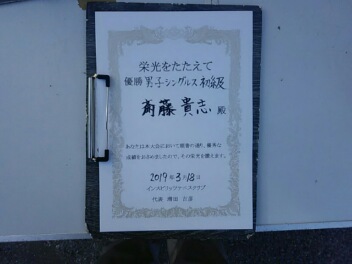 栄光をたたえて
優勝 男子シングルス 初級
斉藤 貴志 殿
あなたは本大会において頭書の通り、優秀な
成績をおさめましたので、その栄光を讃えます。
2019年3月18日
代表 増田 吉彦